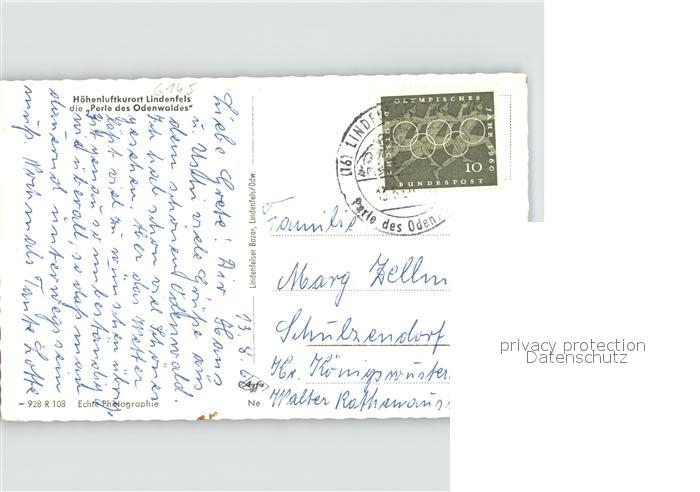 6145
Höhenluftkurort Lindenfels
die „Perle des Odenwaldes"
13. 8. 6
Liebe Grete! Dir, Hans
u. Uschi viele Grüße aus
dem schönen Odenwald.
Ich hab schon viel Schönes
gesehen. Aber das Wetter
läßt viel zu wünschen übrig.
Ist genau so unbeständig
wie überall, so daß man
dauernd unterwegs sein
muß. Nochmals Tante Lotte
928 R 108 Echte Photographie
Lindenfelser Bazar, Lindenfels/Odw.
Agfa
Ne
OLYMPISCHES JAHR 1960
10
BUNDESPOST
(16) LINDEN
Perle des Oden
Familie
Marg Zellm
Schulzendorf
Kr. Königswuster
Walter Rathenaus
privacy protection
Datenschutz